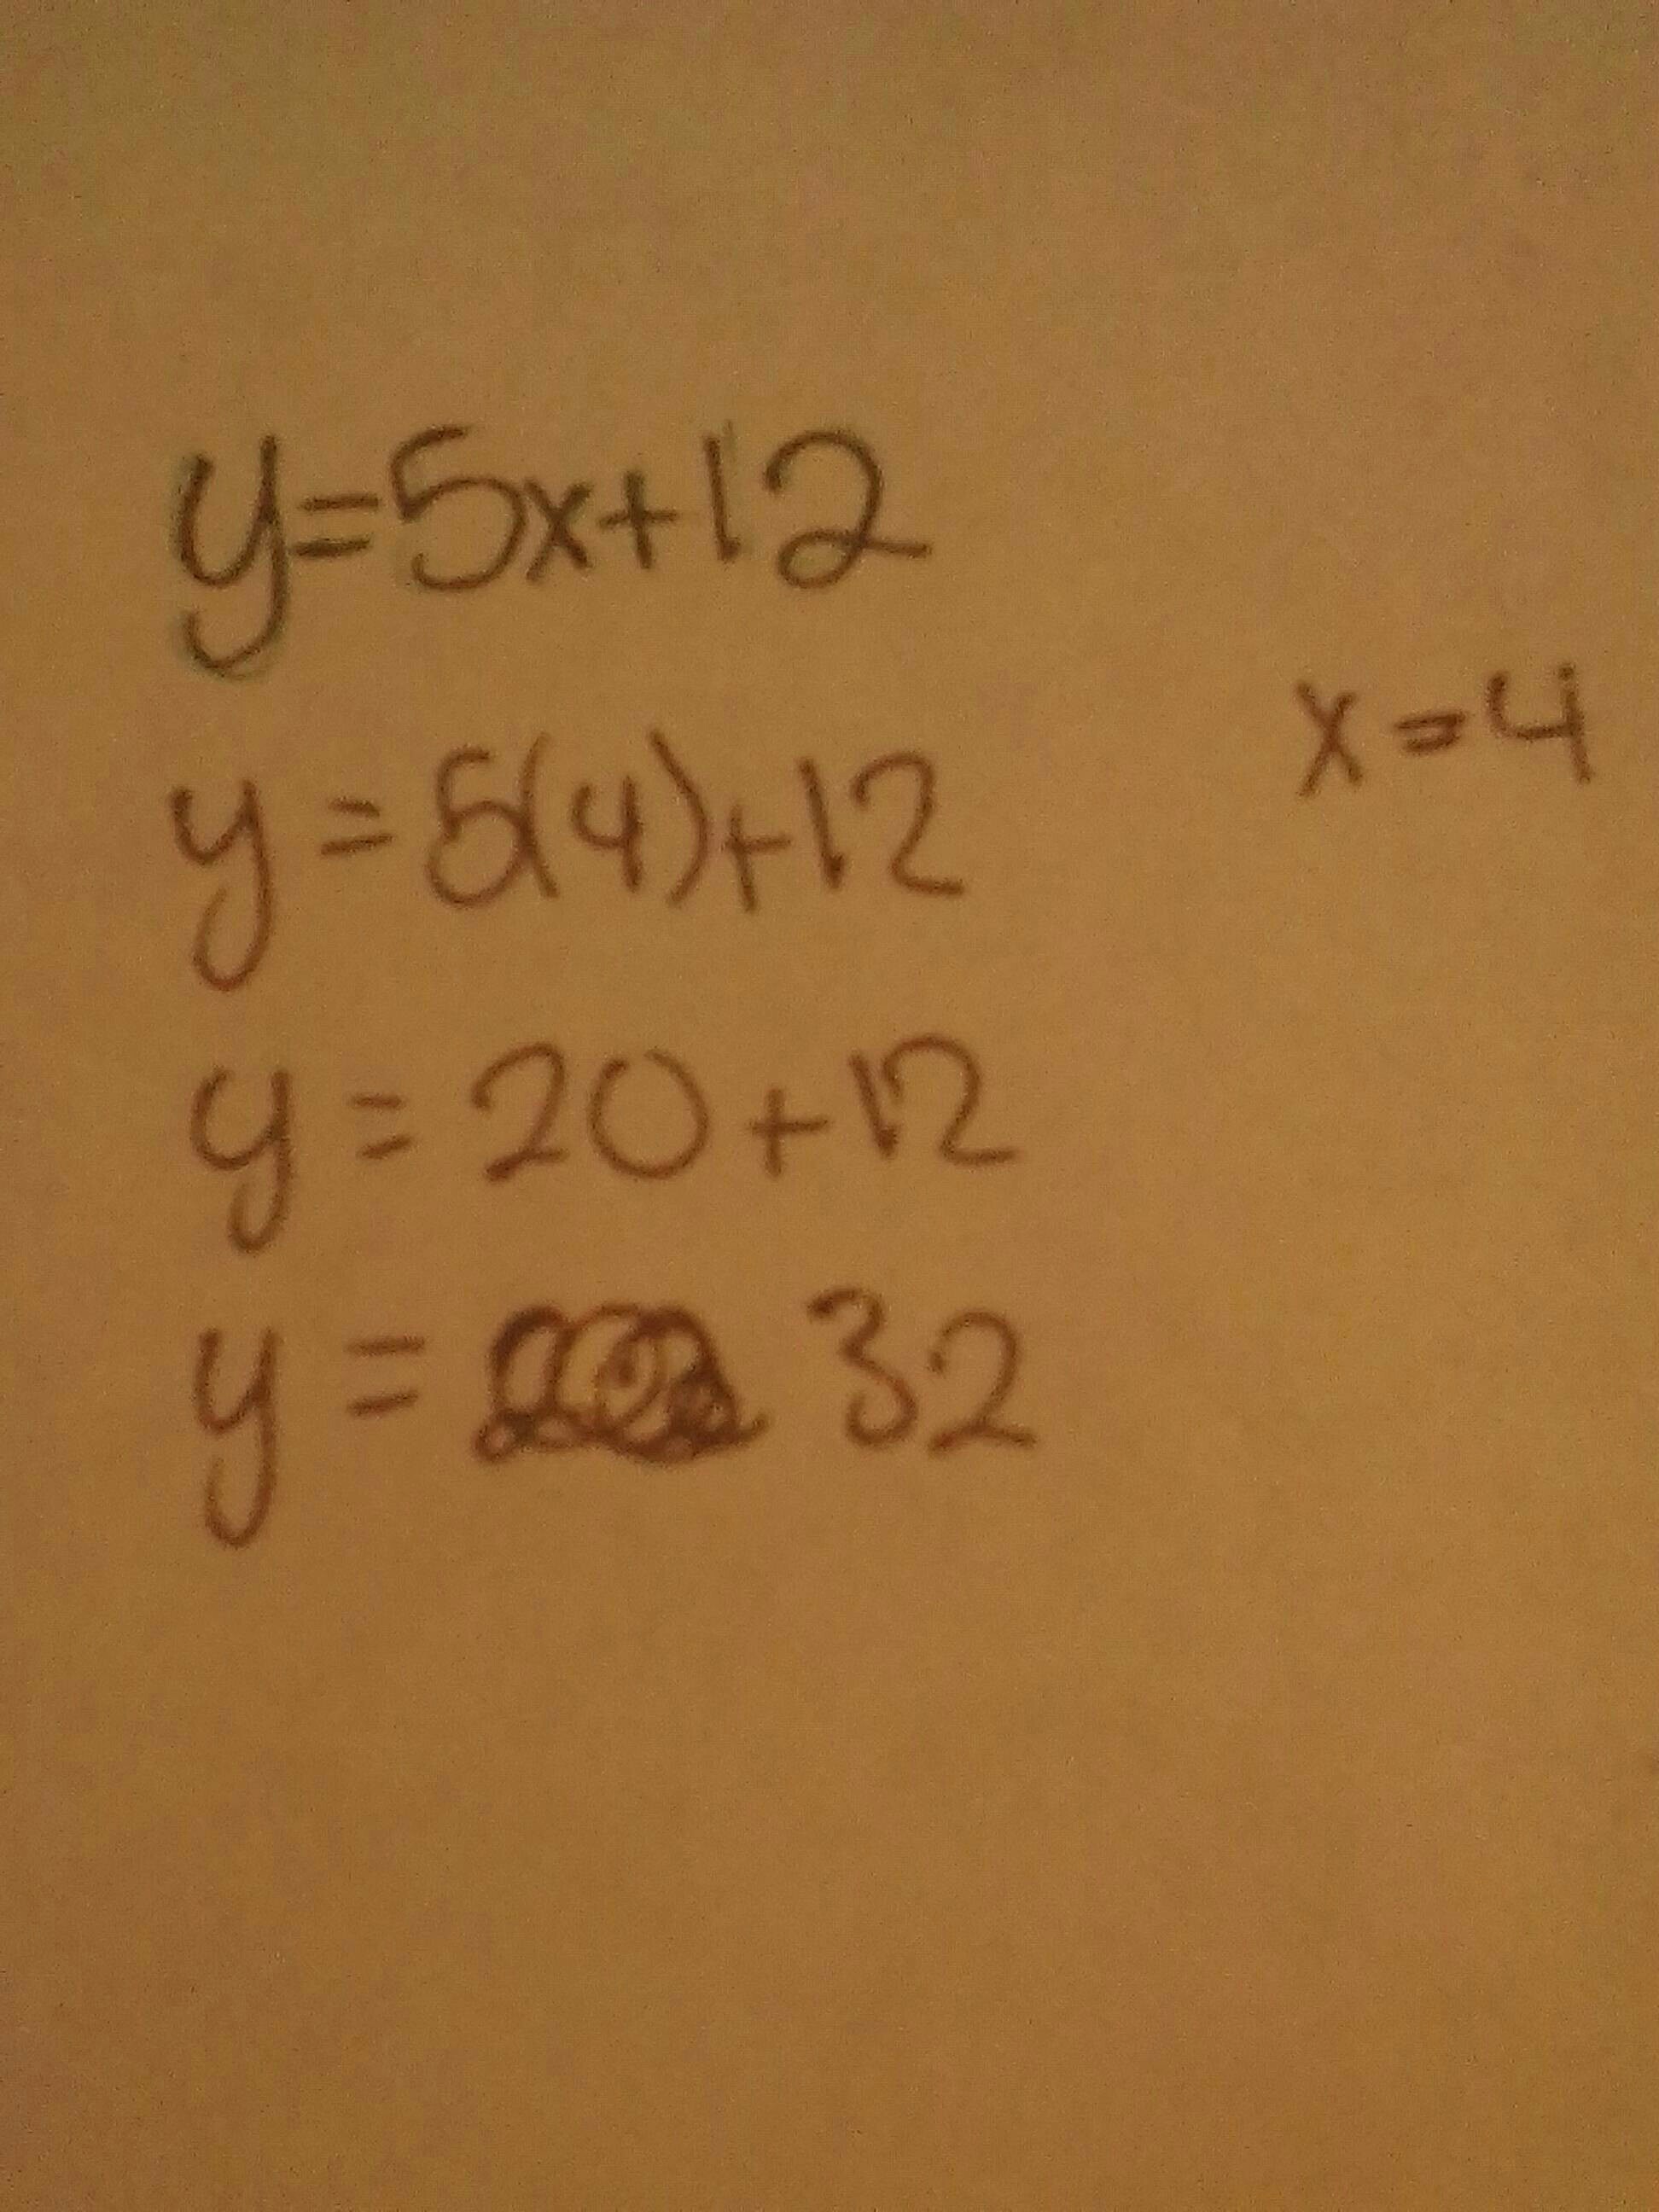 y=5x+12
x=4
y=5(4)+12
y=20+12
y= 32